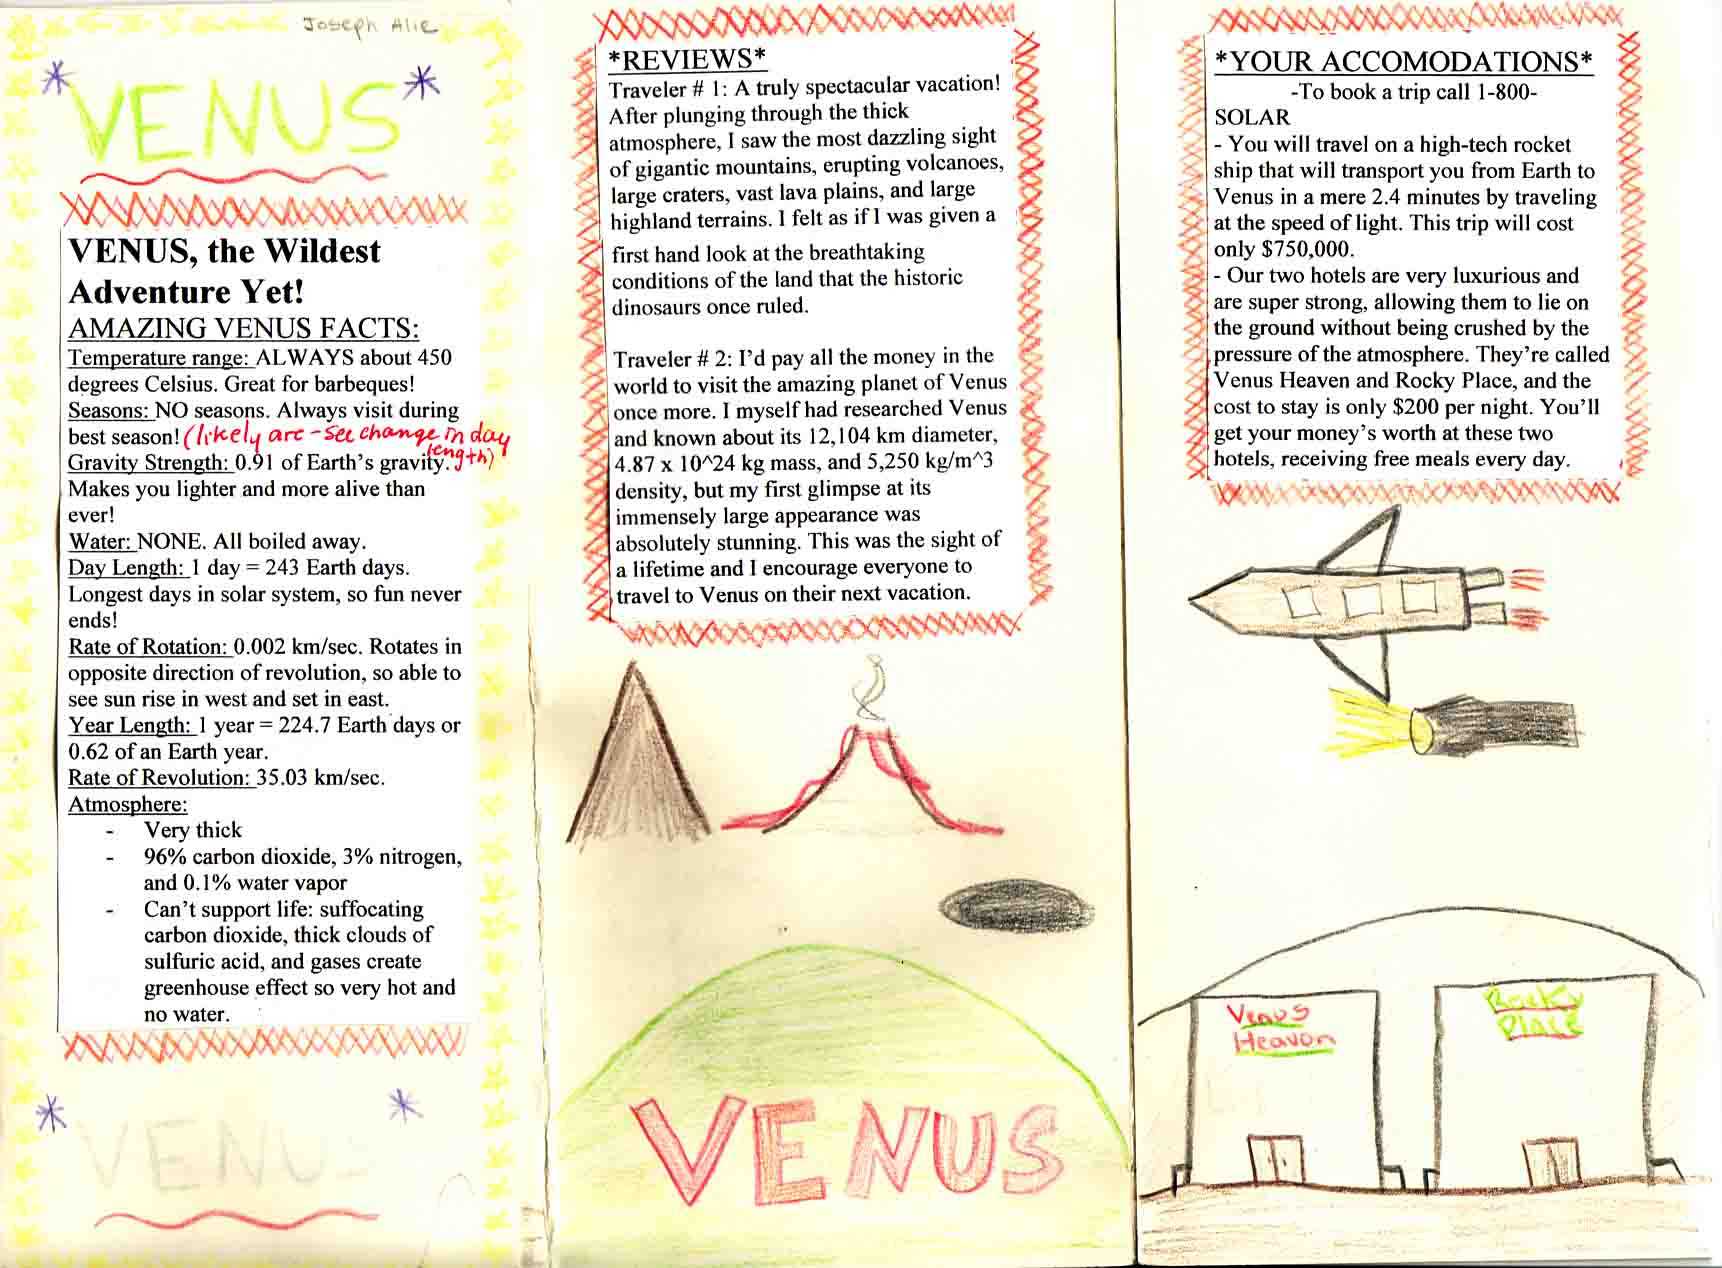 Joseph Alie
VENUS
VENUS, the Wildest
Adventure Yet!
AMAZING VENUS FACTS:
Temperature range: ALWAYS about 450
degrees Celsius. Great for barbeques!
Seasons: NO seasons. Always visit during
best season! (likely are - see change in day
length)
Gravity Strength: 0.91 of Earth's gravity.
Makes you lighter and more alive than
ever!
Water: NONE. All boiled away.
Day Length: 1 day = 243 Earth days.
Longest days in solar system, so fun never
ends!
Rate of Rotation: 0.002 km/sec. Rotates in
opposite direction of revolution, so able to
see sun rise in west and set in east.
Year Length: 1 year = 224.7 Earth days or
0.62 of an Earth year.
Rate of Revolution: 35.03 km/sec.
Atmosphere:
- Very thick
- 96% carbon dioxide, 3% nitrogen,
and 0.1% water vapor
- Can't support life: suffocating
carbon dioxide, thick clouds of
sulfuric acid, and gases create
greenhouse effect so very hot and
no water.
VENUS
*REVIEWS*
Traveler # 1: A truly spectacular vacation!
After plunging through the thick
atmosphere, I saw the most dazzling sight
of gigantic mountains, erupting volcanoes,
large craters, vast lava plains, and large
highland terrains. I felt as if I was given a
first hand look at the breathtaking
conditions of the land that the historic
dinosaurs once ruled.
Traveler # 2: I'd pay all the money in the
world to visit the amazing planet of Venus
once more. I myself had researched Venus
and known about its 12,104 km diameter,
4.87 x 10^24 kg mass, and 5,250 kg/m^3
density, but my first glimpse at its
immensely large appearance was
absolutely stunning. This was the sight of
a lifetime and I encourage everyone to
travel to Venus on their next vacation.
VENUS
*YOUR ACCOMODATIONS*
-To book a trip call 1-800-
SOLAR
- You will travel on a high-tech rocket
ship that will transport you from Earth to
Venus in a mere 2.4 minutes by traveling
at the speed of light. This trip will cost
only $750,000.
- Our two hotels are very luxurious and
are super strong, allowing them to lie on
the ground without being crushed by the
pressure of the atmosphere. They're called
Venus Heaven and Rocky Place, and the
cost to stay is only $200 per night. You'll
get your money's worth at these two
hotels, receiving free meals every day.
Venus
Heaven
Rocky
Place